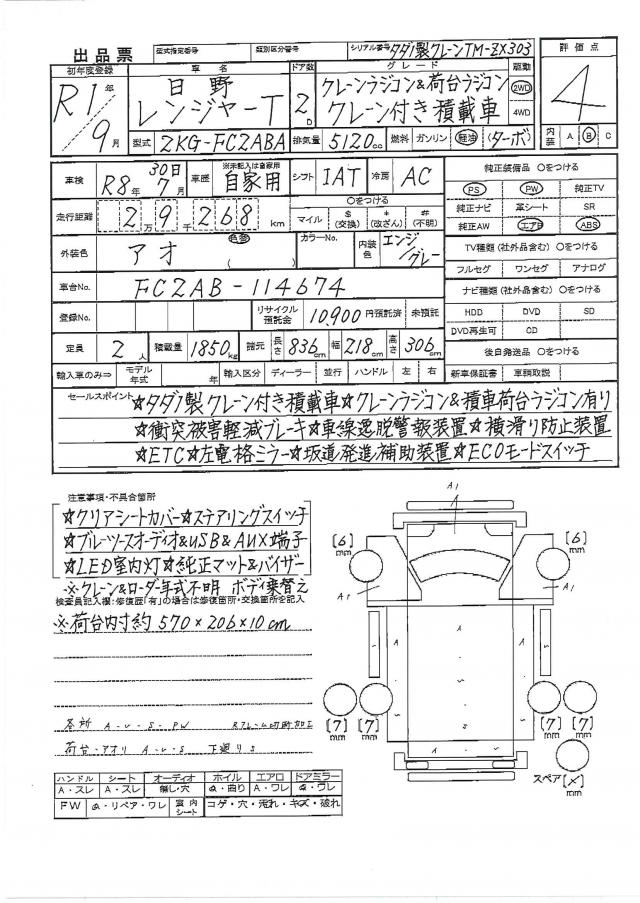 出品票 型式指定番号 類別区分番号 シリアル番号 タダノ製クレーンTM-ZX303
初年度登録 車名 ドア数 グレード 駆動 評価点
R1年 9月 日野 レンジャーT 2D クレーンラジコン&荷台ラジコン クレーン付き積載車 2WD 4WD 4
型式 2KG-FC2ABA 排気量 5120cc 燃料 ガソリン 軽油 (ターボ) 内装 A B C
車検 R8年 30日 7月 車歴 ※未記入は自家用 自家用 シフト IAT 冷房 AC
純正装備品 ○をつける
PS PW 純正TV
純正ナビ 革シート SR
純正AW エアB ABS
走行距離 2万9千268km ○をつける マイル $(交換) *(改ざん) #(不明)
外装色 アオ 色替 ( ) カラーNo. 内装色 エンジ/グレー
TV種類(社外品含む) ○をつける
フルセグ ワンセグ アナログ
車台No. FC2AB-114674
ナビ種類(社外品含む) ○をつける
登録No. リサイクル預託金 10,900円預託済 未預託
HDD DVD SD
DVD再生可 CD
定員 2人 積載量 1850kg 諸元 長さ 836cm 幅 218cm 高さ 306cm
後日発送品 ○をつける
輸入車のみ⇒ モデル年式 年 輸入区分 ディーラー 並行 ハンドル 左 右 新車保証書 車輌取説
セールスポイント ☆タダノ製クレーン付き積載車☆クレーンラジコン&積車荷台ラジコン有り
☆衝突被害軽減ブレーキ☆車線逸脱警報装置☆横滑り防止装置
☆ETC☆左電格ミラー☆坂道発進補助装置☆ECOモードスイッチ
注意事項・不具合箇所
☆クリアシートカバー☆ステアリングスイッチ
☆ブルーツースオーディオ&USB&AUX端子
☆LED室内灯☆純正マット&バイザー
※クレーン&ローダー年式不明 ボディ乗替え
検査員記入欄:修復歴「有」の場合は修復箇所・交換箇所を記入
※荷台内寸約 570×206×10cm
各所 A-U-S-PW Rフレーム切断加工
荷台・アオリ A-U-S 下廻りS
A1
[6]mm [6]mm
A1 A1
A A A
S
[7]mm [7]mm [7]mm [7]mm
A S
スペア[×]mm
ハンドル シート オーディオ ホイル エアロ ドアミラー
A・スレ A・スレ 無し・穴 A・曲り A・ワレ A・ワレ
FW A・リペア・ワレ 室内シート コゲ・穴・汚れ・キズ・破れ